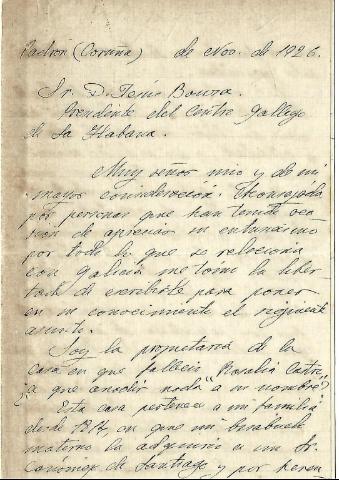 Padrón (Coruña) de Nov. de 1926.
Sr. D. Jesús Bouza.
Presidente del Centro Gallego
de La Habana.
Muy señor mio y de mi
mayor consideración: Aconsejada
por personas que han tenido oca
sion de apreciar su entusiasmo
por todo lo que se relaciona
con galicia me tomo la liber
tad de escribirle para poner
en su conocimiento el siguiente
asunto.
Soy la propietaria de la
casa en que falleció Rosalía Castro,
¿a que anadir nada a su nombre?
Esta casa pertenece a mi familia
desde 1814, en que mi bisabuelo
materno la adquirió a un Sr.
Canónigo de Santiago y por heren